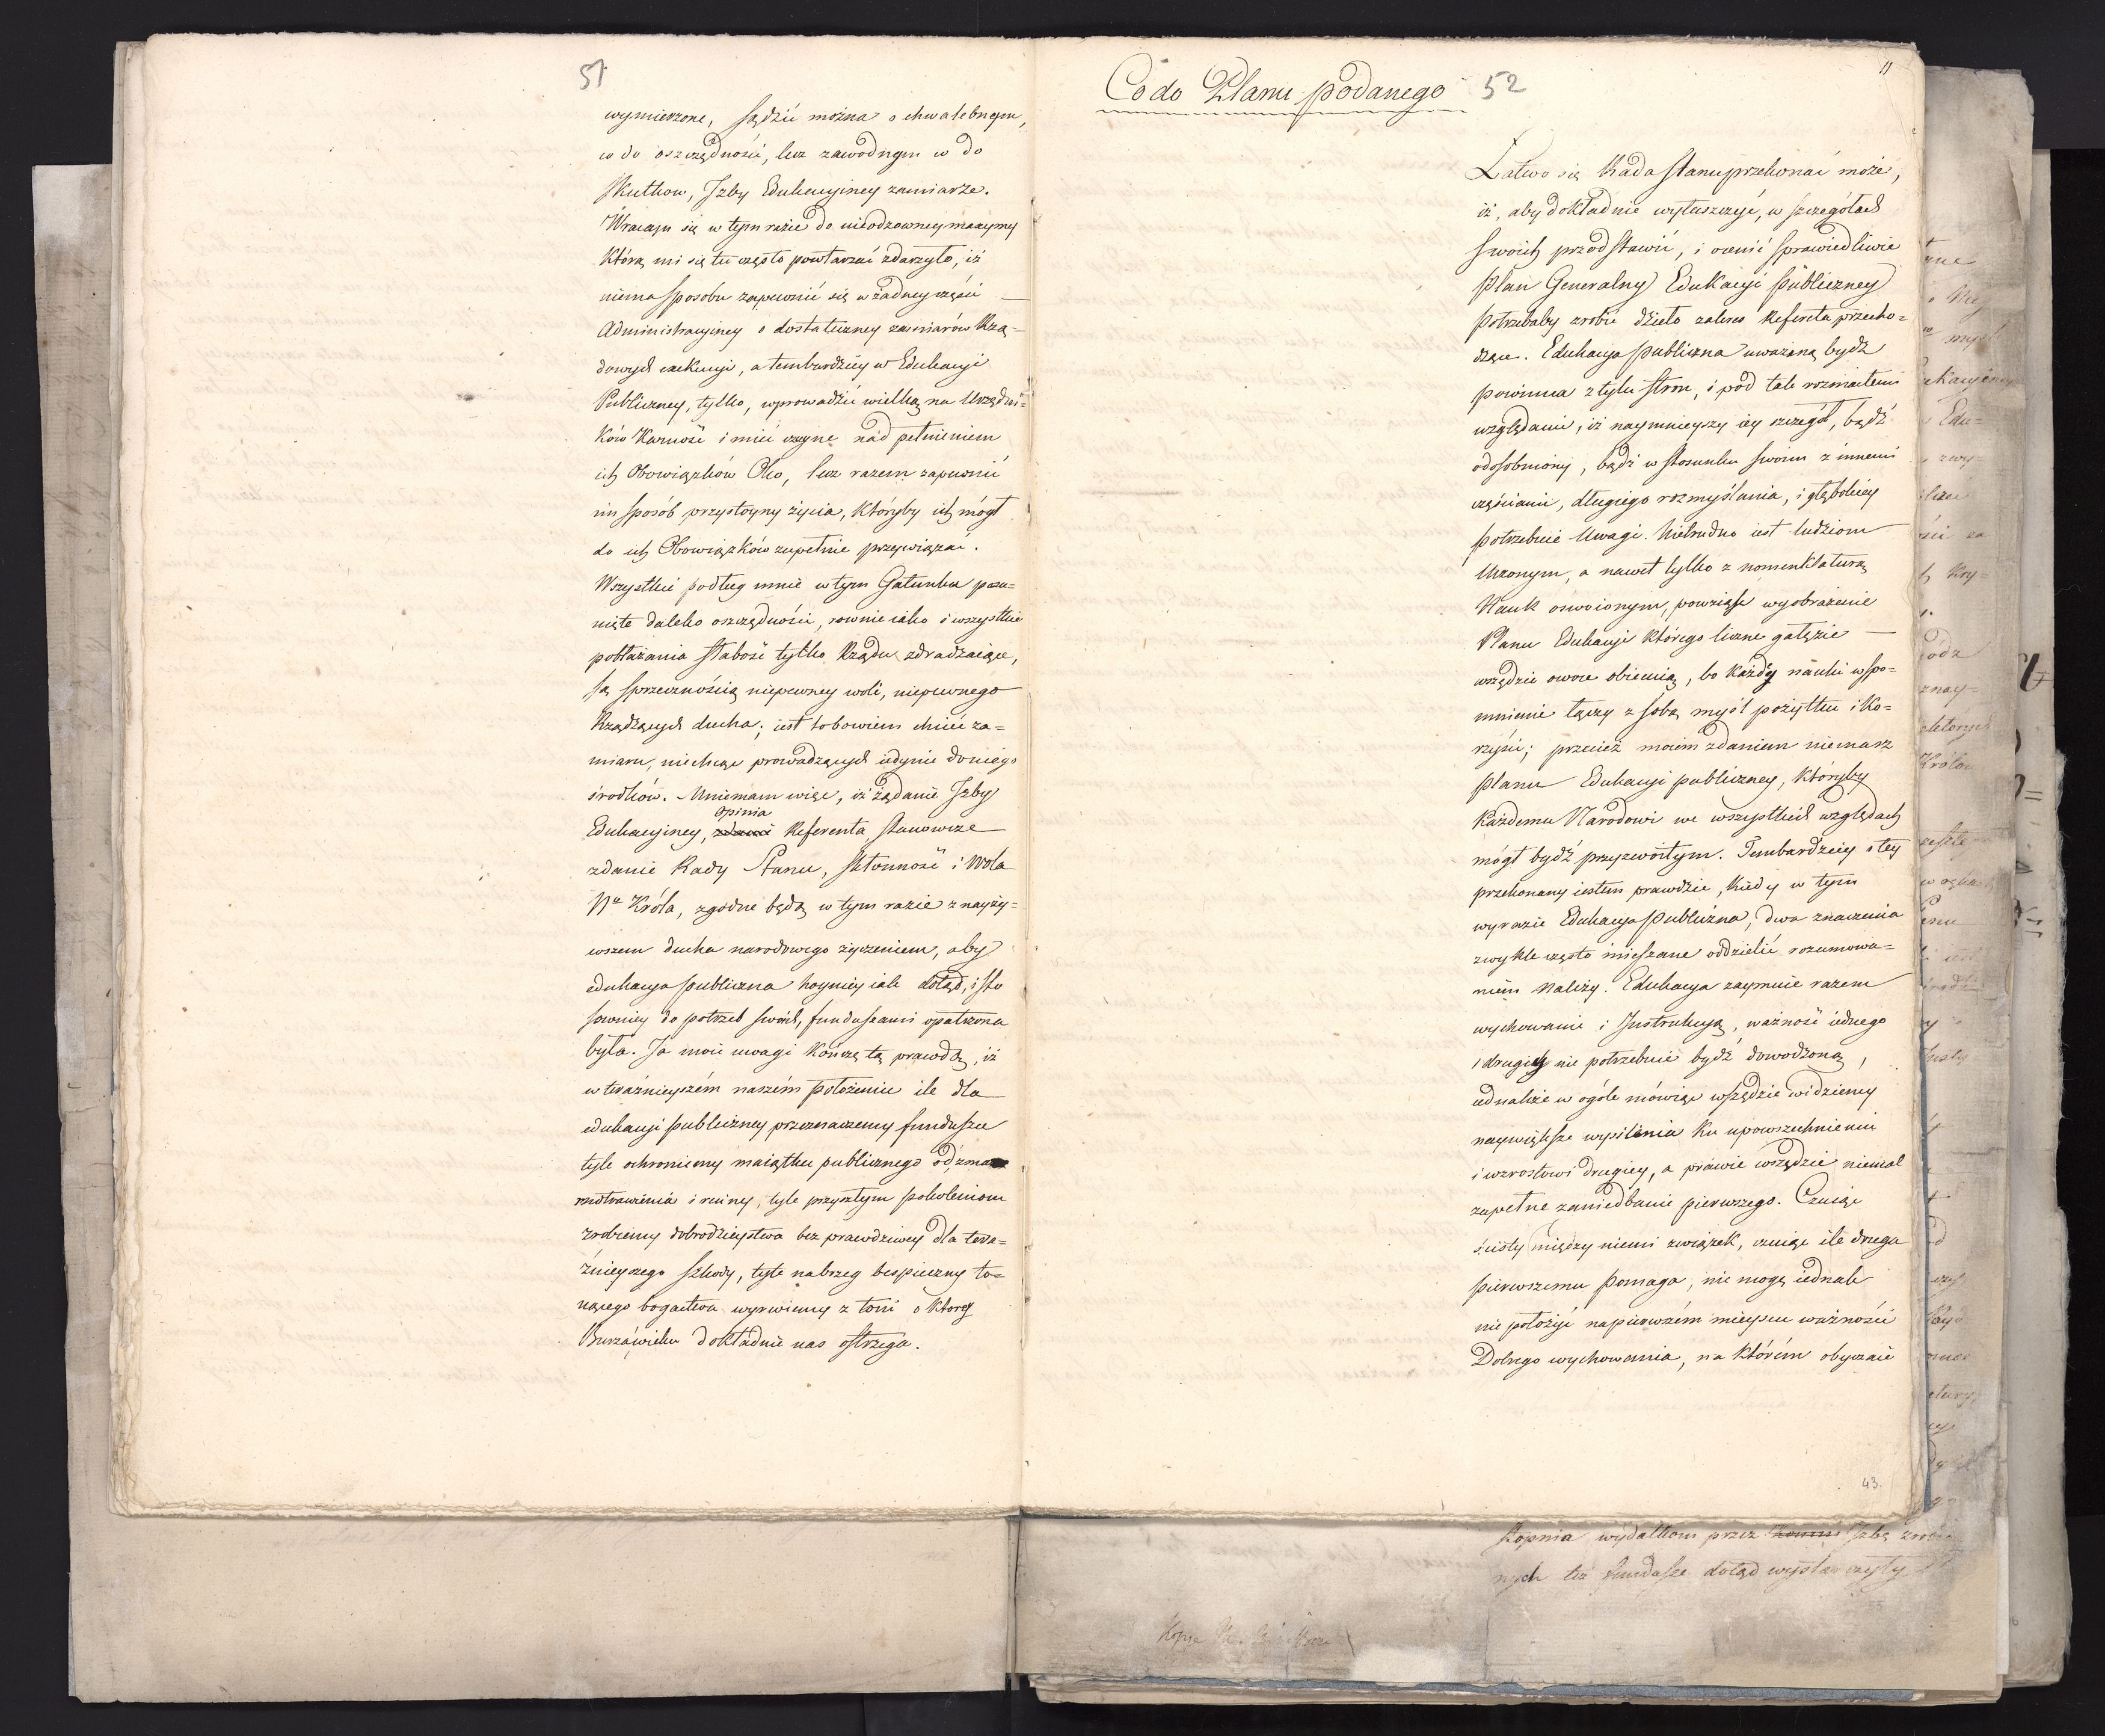 51
wymierzone, sądzić można o chwalebnym,
co do oszczędności, lecz zawodnym co do
skutkow, Izby Edukacyiney zamiarze.
Wracam się w tym razie do nieodzowney maxymy
którą mi się tu często powtarzać zdarzyło, iż
niema sposobu zapewnić się w żadney części —
Administracyiney o dostateczney zamiarów Rzą=
dowych exekucyi, a tembardziey w Edukacyi
Publiczney, tylko, wprowadzić wielką na Urzędni=
ków Karność i mieć czynne nad pełnieniem
ich Obowiązków Oko, lecz razem zapewnić
im sposób przystoyny życia, któryby ich mógł
do ich Obowiązków zupełnie przywiązać.
Wszystkie podług mnie w tym Gatunku posu=
nięte daleko oszczędności, rownie iako i wszystkie
pobłażania słabość tylko Rządu zdradzaiące,
są sprzecznością niepewney woli, niepewnego
Rządzących ducha; iest to bowiem chcieć za=
miaru, niechcąc prowadzących iedynie do niego
środków. Mniemam więc, iż żądanie Izby
opinia
Edukacyiney, zdanie Referenta stanowcze
zdanie Rady Stanu, skłonność i Wola
Nº Króla, zgodne będą w tym razie z nayży=
wszem ducha narodowego życzeniem, aby
edukacya publiczna hoyniey iak dotąd, i sto
sowniey do potrzeb swoich, funduszami opatrzona
była. Ja moie uwagi kończę tą prawdą, iż
w teraźnieyszém naszém położeniu ile dla
edukacyi publiczney przeznaczemy funduszu
tyle ochroniemy maiątku publicznego od
roztrwonienia i ruiny, tyle przyszłym pokoleniom
zrobiemy dobrodzieystwa bez prawdziwey dla tera=
źnieyszego szkody, tyle na brzeg bespieczny to=
nącego bogactwa wyrwiemy z toni o ktorey
Burza wieku dokładnie nas ostrzega.
Co do Planu podanego
52
11
Łatwo się Rada Stanu przekonać może,
iż, aby dokładnie wyłuszczyć, w szczegółach
swoich przedstawić, i ocenić sprawiedliwie
Plan Generalny Edukacyi publiczney
potrzebaby zrobić dzieło zakres Referenta przecho=
dzące. Edukacya publiczna uważaną bydź
powinna z tylu stron, i pod tak rozmaitemi
względami, iż naymnieyszy iey szczegół, bądź
odosobniony, bądź w stosunku swoim z innemi
częściami, długiego rozmyślania, i głębokiey
potrzebuie Uwagi. Nietrudno iest ludziom
Uczonym, a nawet tylko z nomenklaturą
Nauk oswoionym, powziąść wyobrażenie
Planu Edukacyi którego liczne gałęzie —
wszędzie owoce obiecuią, bo każdy nauki wspo=
mnienie łączy z sobą myśl pożytku i ko=
rzyści; przecież moiem zdaniem niemasz
planu Edukacyi publiczney, któryby
każdemu Narodowi we wszystkich względach
mógł bydź przyzwoitym. Tembardziey o tey
przekonany iestem prawdzie, kiedy w tym
wyrazie Edukacya publiczna, dwa znaczenia
zwykle często mieszane oddzielić rozumowa=
niem należy. Edukacya zaymuie razem
wychowanie i Instrukcyą, ważność iednego
i drugiey nie potrzebuie bydź dowodzoną,
iednakże w ogóle mówiąc wszędzie widziemy
naywiększe wysilenia ku upowszechnieniu
i wzrostowi drugiey, a prawie wszędzie niemal
zupełne zaniedbanie pierwszego. Czuiąc
ścisły między niemi związek, czuiąc ile druga
pierwszemu pomaga, nie mogę iednak
nie położyć na pierwszém mieyscu ważności
Dobrego wychowania, na którém obyczaie
43.
stopnia wydatkom przez Izbę
nych też fundusze dotąd wystarczyły